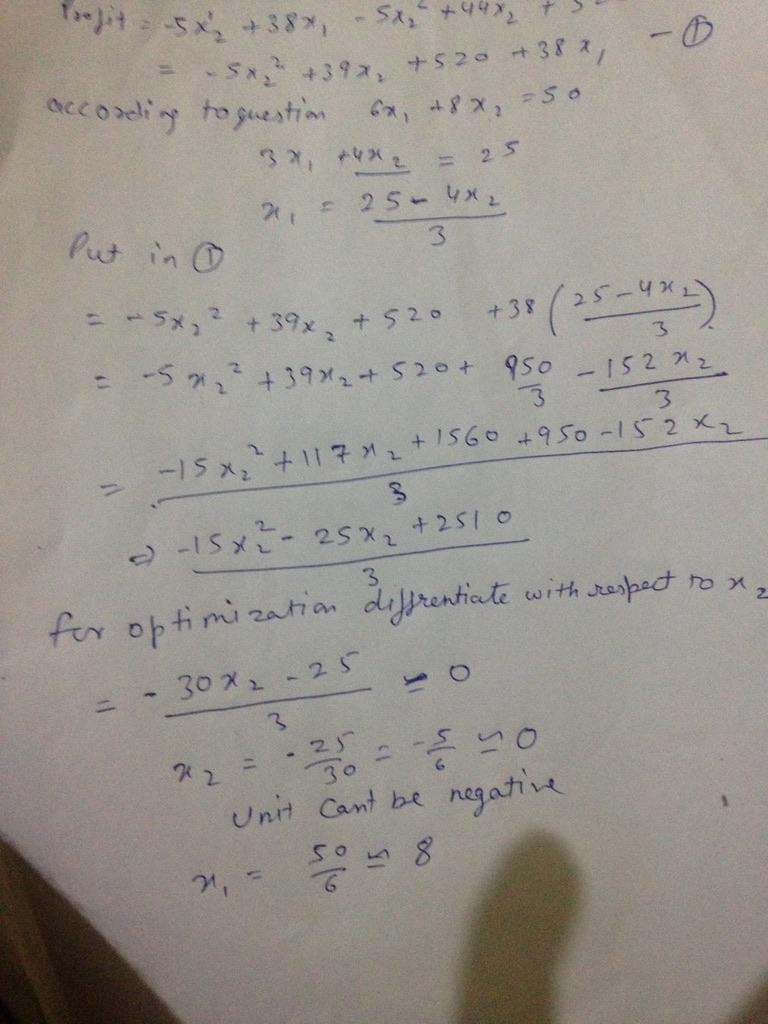 Profit = -5x₂² + 38x₁ - 5x₂² + 44x₂ + 52
= -5x₂² + 39x₂ + 520 + 38x₁ - ①
according to question 6x₁ + 8x₂ = 50
3x₁ + 4x₂ = 25
x₁ = (25 - 4x₂)/3
Put in ①
= -5x₂² + 39x₂ + 520 + 38((25 - 4x₂)/3)
= -5x₂² + 39x₂ + 520 + 950/3 - 152x₂/3
= (-15x₂² + 117x₂ + 1560 + 950 - 152x₂)/3
⇒ (-15x₂² - 25x₂ + 2510)/3
for optimization diffrentiate with respect to x₂
= (-30x₂ - 25)/3 = 0
x₂ = -25/30 = -5/6 ≃ 0
Unit Cant be negative
x₁ = 50/6 ≃ 8